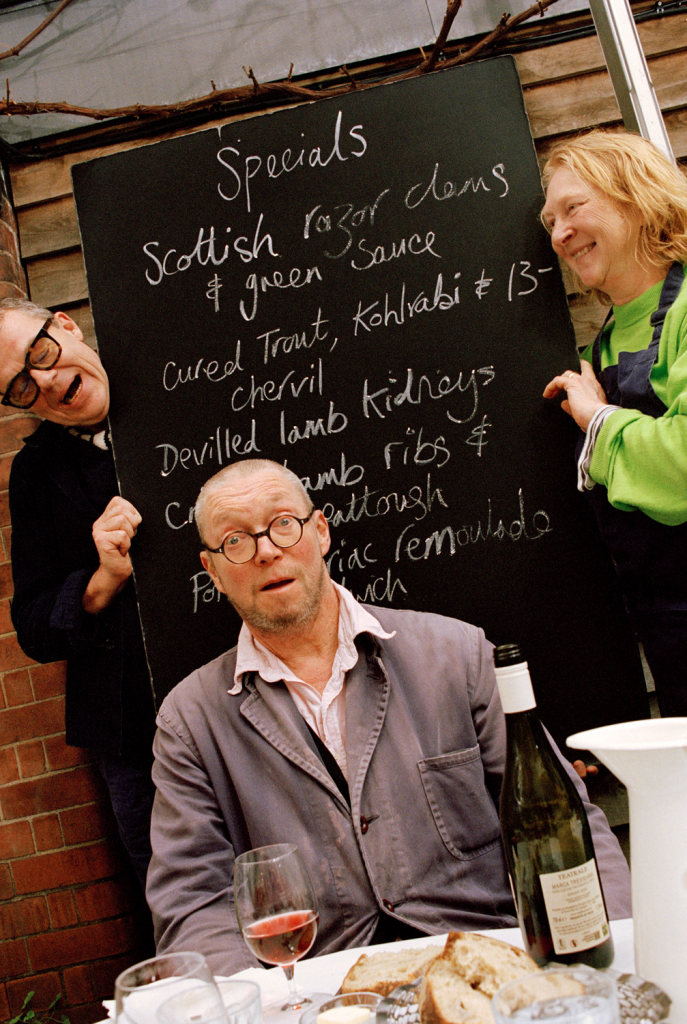 Specials
Scottish razor clams
& green sauce
Cured Trout, Kohlrabi & 13-
chervil
Devilled lamb kidneys
lamb ribs &
riac remoulade